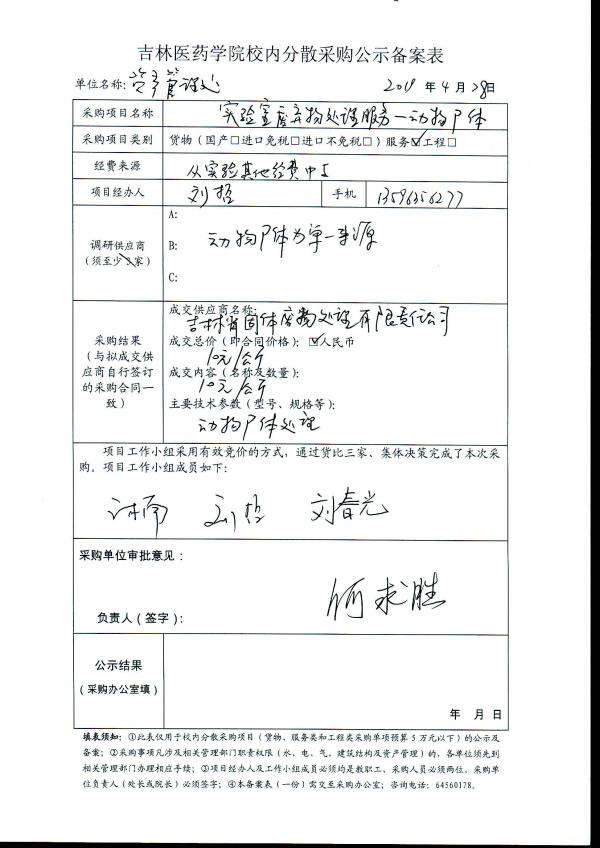 吉林医药学院校内分散采购公示备案表
单位名称: 资产管理处 2019 年 4 月 28 日
采购项目名称 实验室废弃物处理服务—动物尸体
采购项目类别 货物（国产□进口免税□进口不免税□）服务☑工程□
经费来源 从实验其他经费中支
项目经办人 刘哲 手机 13596356277
调研供应商
（须至少3家）
A:
B: 动物尸体为单一来源
C:
采购结果
（与拟成交供应商自行签订的采购合同一致）
成交供应商名称:
吉林省固体废物处理有限责任公司
成交总价（即合同价格）: ☑人民币
10元/公斤
成交内容（名称及数量）:
10元/公斤
主要技术参数（型号、规格等）:
动物尸体处理
项目工作小组采用有效竞价的方式，通过货比三家、集体决策完成了本次采
购。项目工作小组成员如下:
刘哲 刘春光
采购单位审批意见:
何求胜
负责人（签字）:
公示结果
（采购办公室填）
年 月 日
填表须知: ①此表仅用于校内分散采购项目（货物、服务类和工程类采购单项预算 5 万元以下）的公示及
备案; ②采购事项凡涉及相关管理部门职责权限（水、电、气、建筑结构及资产管理）的, 各单位须先到
相关管理部门办理相应手续; ③项目经办人及工作小组成员必须均是教职工、采购人员必须两位、采购单
位负责人（处长或院长）必须签字; ④本备案表（一份）需交至采购办公室; 咨询电话: 64560178。